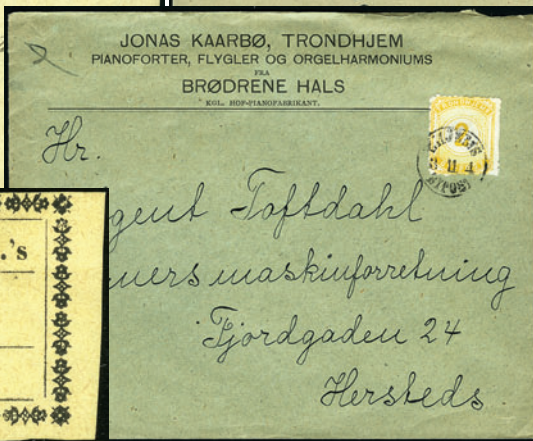 JONAS KAARBØ, TRONDHJEM
PIANOFORTER, FLYGLER OG ORGELHARMONIUMS
FRA
BRØDRENE HALS
KGL. HOF-PIANOFABRIKANT.
Hr.
gent Toftdahl
ners maskinforretning
Fjordgaden 24
Hersteds
.'s